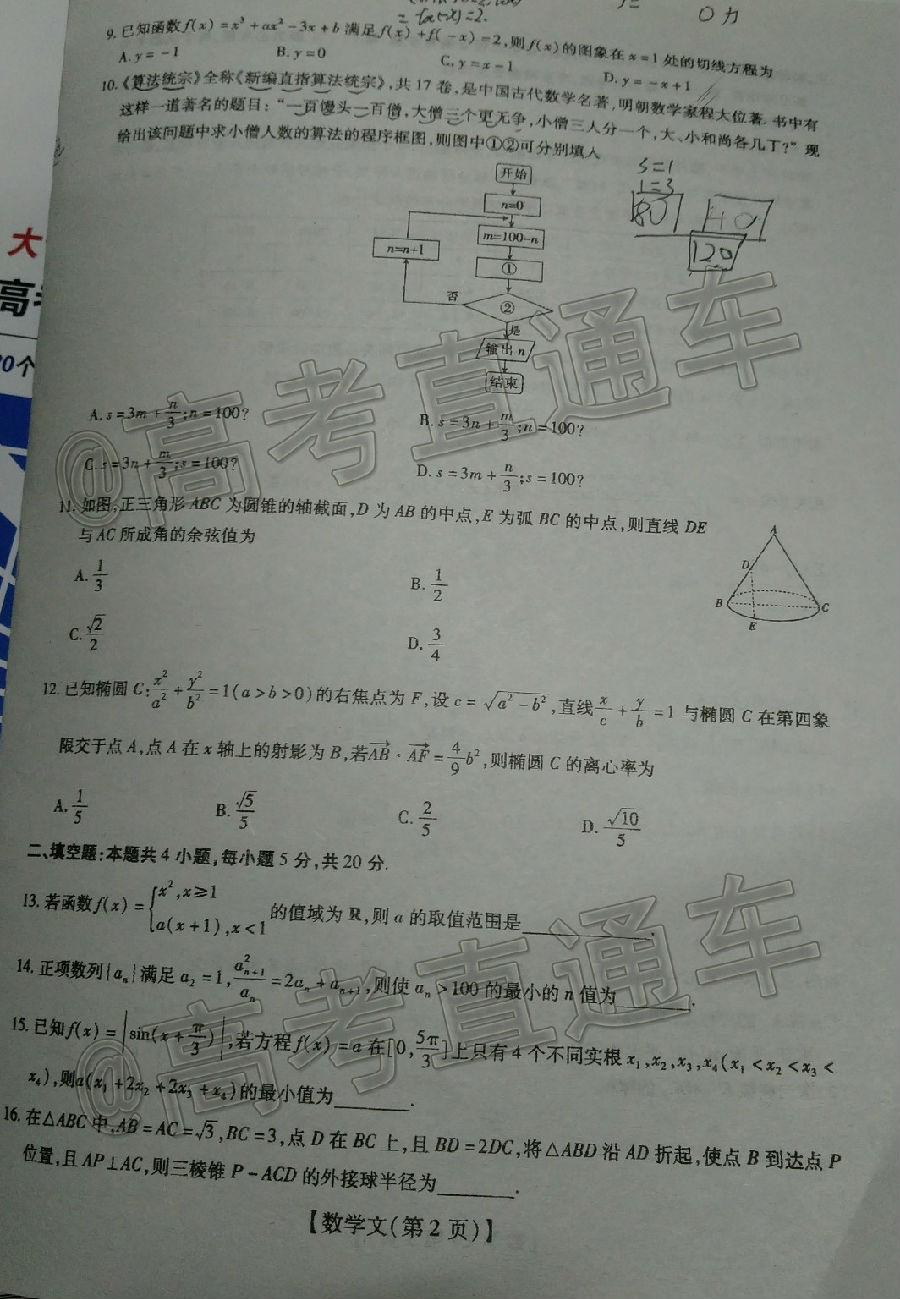 = f(-x)=2.
9.已知函数f(x)=x³+ax²-3x+b满足f(x)+f(-x)=2,则f(x)的图象在x=1处的切线方程为
A.y=-1 B.y=0 C.y=x-1 D.y=-x+1
10.《算法统宗》全称《新编直指算法统宗》,共17卷,是中国古代数学名著,明朝数学家程大位著.书中有
这样一道著名的题目:“一百馒头一百僧,大僧三个更无争,小僧三人分一个,大、小和尚各几丁?”现
给出该问题中求小僧人数的算法的程序框图,则图中①②可分别填入
S=1
i=3
80 40
120
开始
n=0
m=100-n
n=n+1
①
否 ②
是
输出n
结束
A.s=3m+n/3;n=100? B.s=3n+m/3;n=100?
C.s=3n+m/3;s=100? D.s=3m+n/3;s=100?
11.如图,正三角形ABC为圆锥的轴截面,D为AB的中点,E为弧BC的中点,则直线DE
与AC所成角的余弦值为
A.1/3 B.1/2
C.√2/2 D.3/4
A
D
B C
E
12.已知椭圆C:x²/a²+y²/b²=1(a>b>0)的右焦点为F,设c=√(a²-b²),直线x/c+y/b=1与椭圆C在第四象
限交于点A,点A在x轴上的射影为B,若AB·AF=4/9b²,则椭圆C的离心率为
A.1/5 B.√5/5 C.2/5 D.√10/5
二、填空题:本题共4小题,每小题5分,共20分.
13.若函数f(x)={x²,x≥1
a(x+1),x<1 的值域为R,则a的取值范围是________.
14.正项数列{aₙ}满足a₂=1,a²ₙ₊₁/aₙ=2aₙ+aₙ₊₁,则使aₙ>100的最小的n值为________.
15.已知f(x)=|sin(x+π/3)|,若方程f(x)=a在[0,5π/3]上只有4个不同实根x₁,x₂,x₃,x₄(x₁<x₂<x₃<
x₄),则a(x₁+2x₂+2x₃+x₄)的最小值为________.
16.在△ABC中,AB=AC=√3,BC=3,点D在BC上,且BD=2DC,将△ABD沿AD折起,使点B到达点P
位置,且AP⊥AC,则三棱锥P-ACD的外接球半径为________.
【数学文(第2页)】
@高考直通车
@高考直通车
大
高考
20个